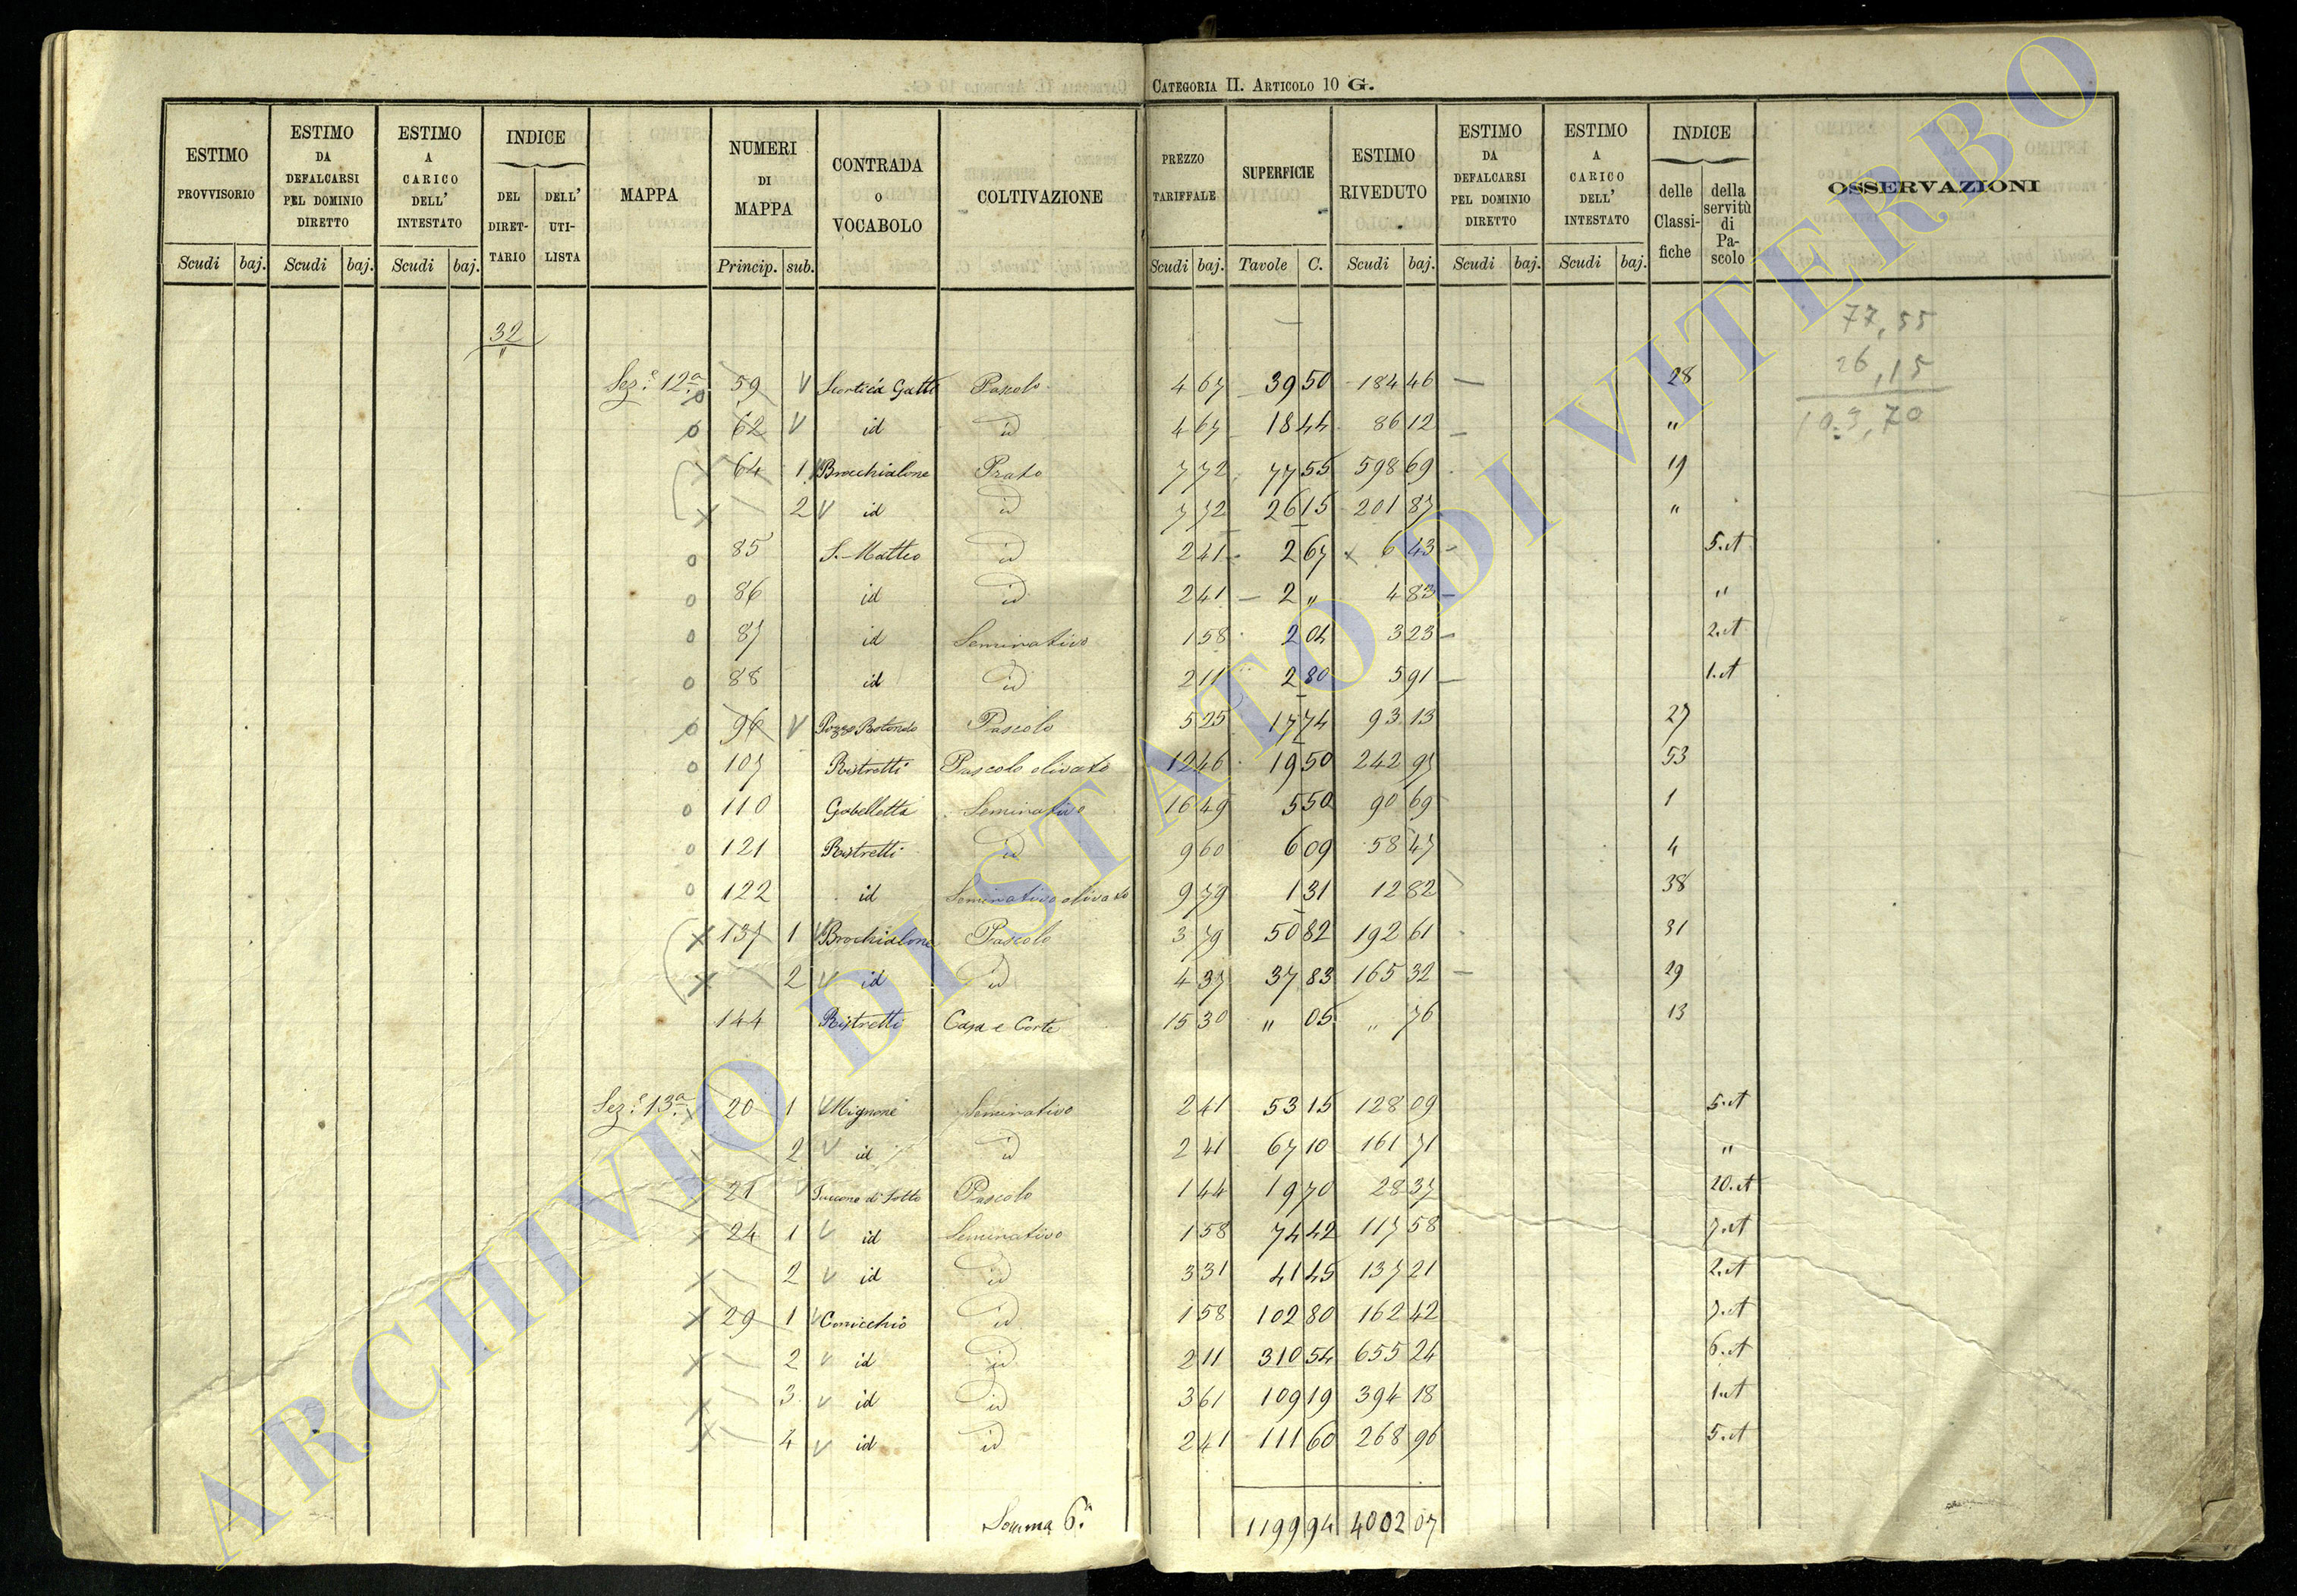 CATEGORIA II. ARTICOLO 10 G.
ESTIMO PROVVISORIO Scudi baj.
ESTIMO DA DEFALCARSI PEL DOMINIO DIRETTO Scudi baj.
ESTIMO A CARICO DELL' INTESTATO Scudi baj.
INDICE DEL DIRET- TARIO DELL' UTI- LISTA
MAPPA
NUMERI DI MAPPA Princip. sub.
CONTRADA O VOCABOLO
COLTIVAZIONE
PREZZO TARIFFALE Scudi baj.
SUPERFICIE Tavole C.
ESTIMO RIVEDUTO Scudi baj.
ESTIMO DA DEFALCARSI PEL DOMINIO DIRETTO Scudi baj.
ESTIMO A CARICO DELL' INTESTATO Scudi baj.
INDICE delle Classi- fiche della servitù di Pa- scolo
OSSERVAZIONI
32 "
77,55
26,15
103,70
Sez.e 12a 59 Scortica Gatti Pascolo 4 67 39 50 184 46 28
62 id id 4 67 18 44 86 12 "
64 1 Brocchialone Prato 7 72 77 55 598 69 19
2 id id 7 72 26 15 201 87 "
85 S. Matteo id 2 41 2 67 6 43 5.A
86 id id 2 41 2 " 4 83 "
87 id Seminativo 1 58 2 04 3 23 2.A
88 id id 2 11 2 80 5 91 1.A
96 Pozzo Rotondo Pascolo 5 25 17 74 93 13 27
107 Ristretti Pascolo olivato 12 46 19 50 242 97 53
110 Gabelletta Seminativo 16 49 5 50 90 69 1
121 Ristretti id 9 60 6 09 58 47 4
122 id Seminativo olivato 9 79 1 31 12 82 38
137 1 Brochialone Pascolo 3 79 50 82 192 61 31
2 id id 4 37 37 83 165 32 29
144 Ristretti Casa e Corte 15 30 " 05 " 76 13
Sez.e 13a 20 1 Mignone Seminativo 2 41 53 15 128 09 5.A
2 id id 2 41 67 10 161 71 "
21 di Sotto Pascolo 1 44 19 70 28 37 20.A
24 1 id Seminativo 1 58 74 42 117 58 7.A
2 id id 3 31 41 45 137 21 2.A
29 1 Conicchio id 1 58 102 80 162 42 7.A
2 id id 2 11 310 54 655 24 6.A
3 id id 3 61 109 19 394 18 1.A
4 id id 2 41 111 60 268 96 5.A
Somma 6.a 1199 94 4002 07
ARCHIVIO DI STATO DI VITERBO